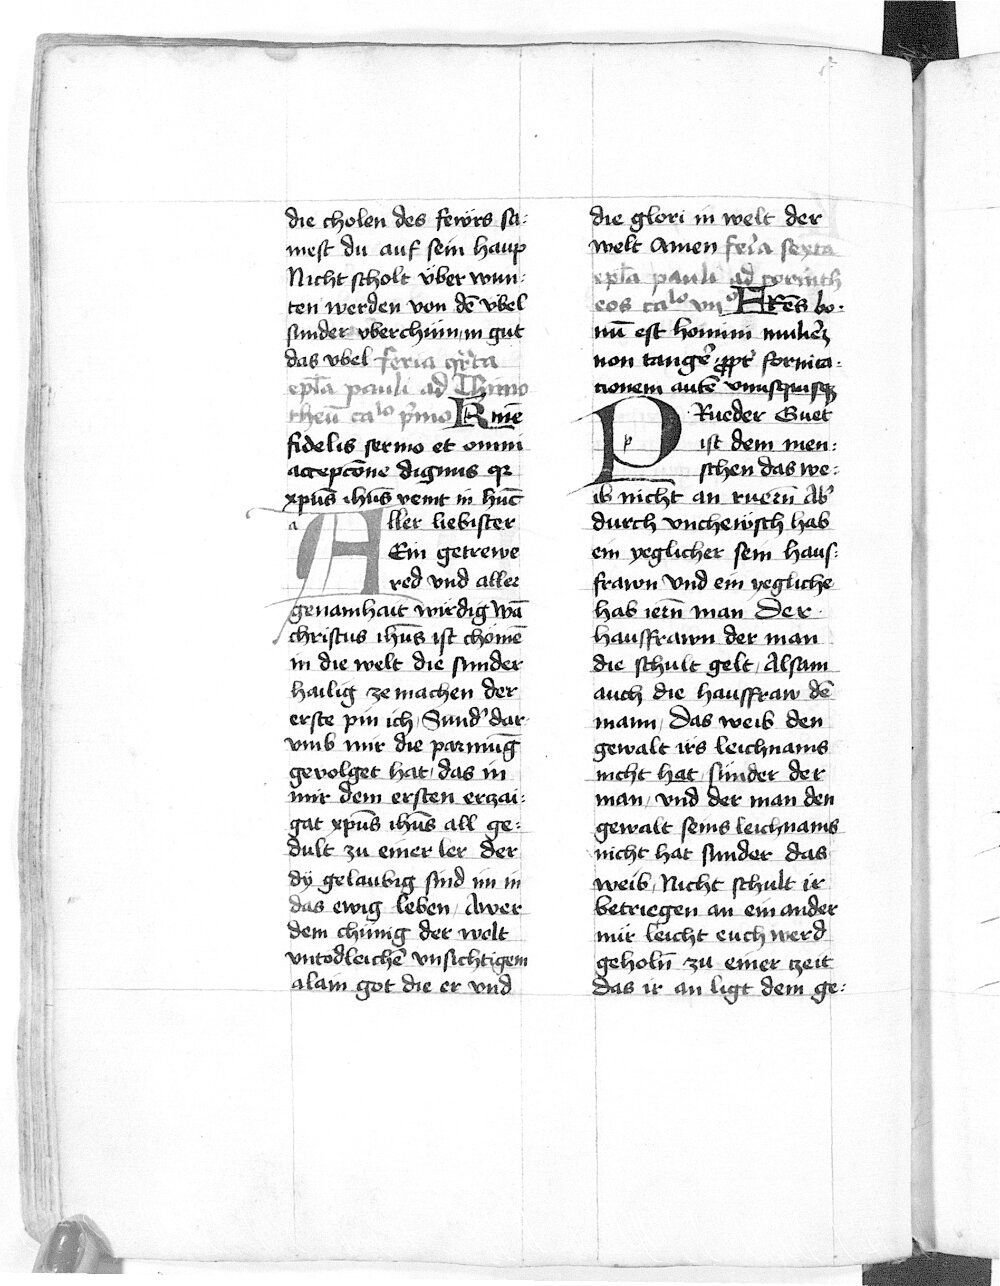 die cholen des fewrs sa:
mest du auf sein haup
Nicht scholt uber wun:
ten werden von dē vbel
sunder vberchüm in gut
das vbel feria qrta
epla pauli ad Thimo
theū calo pmo Kmē
fidelis sermo et omni
accepcōne dignus qr
xpūs ihūs venit in hūc
Aller liebister
Ein getrewe
red vnd aller
genamhait wirdig wā
christus ihūs ist chomē
in die welt die sunder
hailig ze machen der
erste pin ich Sund' dar
vmb mir die parmūg
gevolget hat das in
mir dem ersten erczai:
gat xpūs ihūs all ge:
dult zu einer ler der
dÿ gelaubig sind im in
das ewig leben Awer
dem chünig der welt
vntodleichē vnsichtigem
alain got die er vnd
die glori in welt der
welt Amen feria sexta
epla pauli ad corinth
eos calo viio FRēs bo:
nū est homini muliez
non tangē ppt fornica:
cionem autē vnusquisqz
PRueder Guet
ist dem men:
schen das we:
ib nicht an ruern Ab'
durch vncheusch hab
ein yeglicher sein haus:
frawn vnd ein yegliche
hab iern man Der
hausfrawn der man
die schult gelt Alsam
auch die hausfraw dē
mann Das weib den
gewalt irs leichnams
nicht hat sunder der
man vnd der man den
gewalt seins leichnams
nicht hat sunder das
weib Nicht schult ir
betriegen an ein ander
mir leicht euch werd
geholn zu einer czeit
das ir an ligt dem ge: